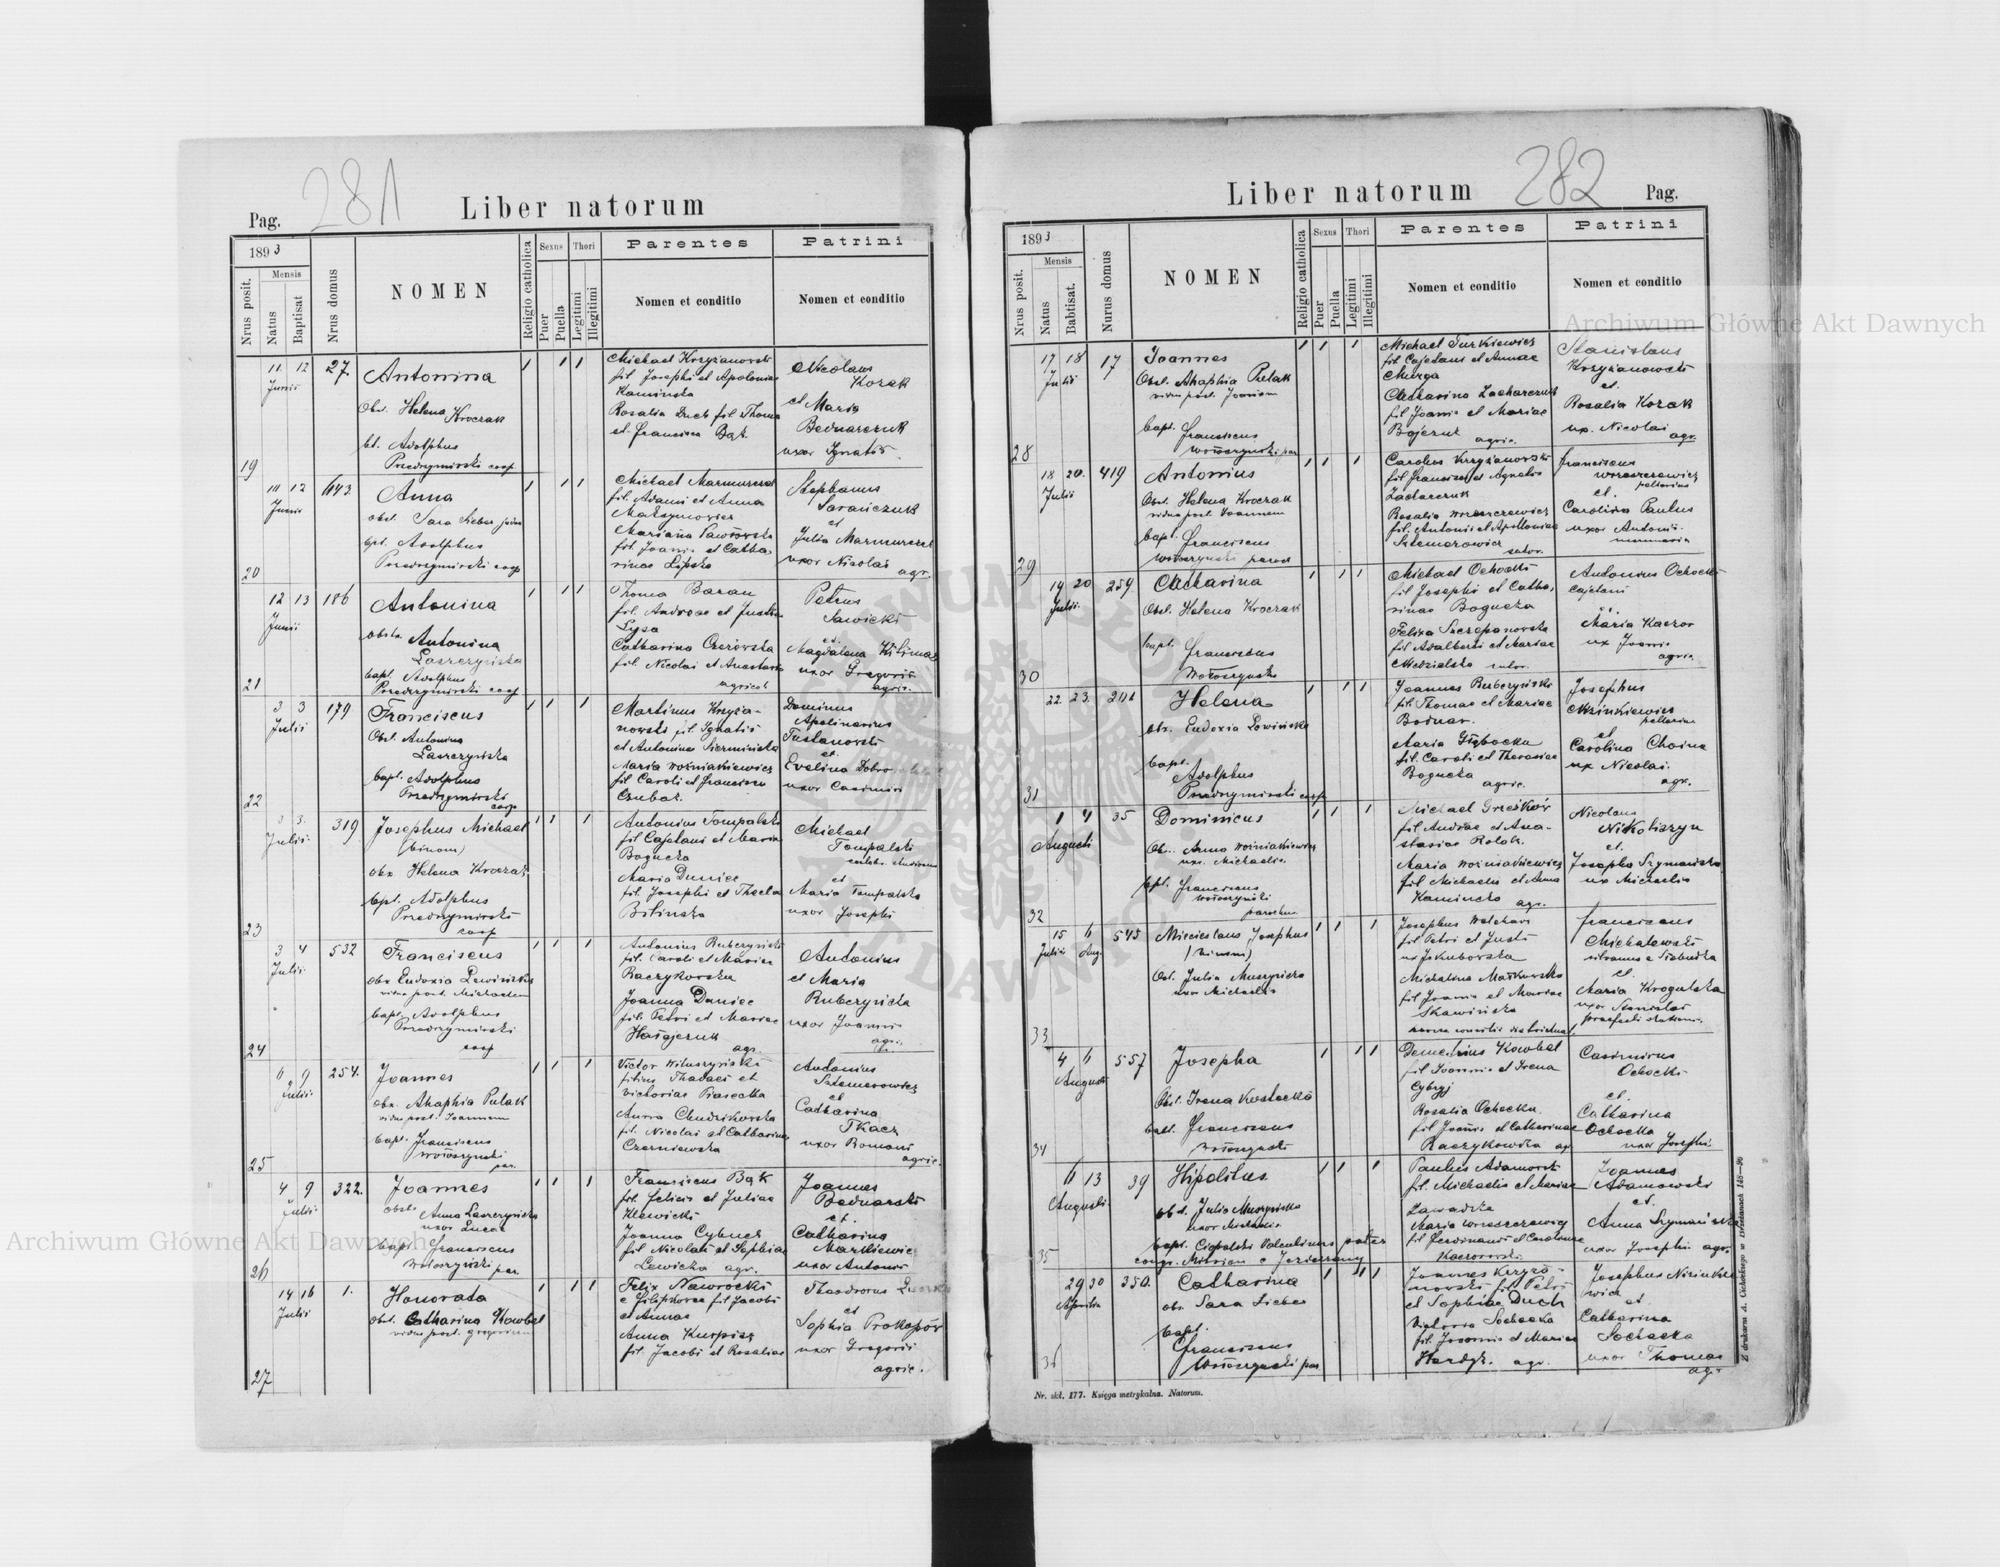 281
Liber natorum
Pag.
1893
Nrus posit.
Mensis
Natus
Baptisat
Nrus domus
NOMEN
Religio catholica
Sexus
Puer
Puella
Thori
Legitimi
Illegitimi
Parentes
Nomen et conditio
Patrini
Nomen et conditio
19
11 12
Junii
27
Antonina
Obst. Helena Kroczak
bt. Adolphus
Przedrzymirski coop
Michael Krzyżanowski
fil Josephi et Apoloniae
Kaminska
Rosalia Duch fil Thoma
et Francisca Bąk
Nicolaus
Kozak
et Maria
Bednarczuk
uxor Ignatii
20
11 12
Junii
643
Anna
obst. Sara Sieber
bpt. Adolphus
Przedrzymirski coop
Michael Marmurczak
fil. Adami et Anna
Maksymowicz
Mariana Pawłowska
fil Joannis et Catha
rinae Lipska
Stephanus
Sarańczuk
et
Julia Marmurczak
uxor Nicolai
agr.
21
12 13
Junii
186
Antonina
obstr. Antonina
Laszczyńska
bapt. Adolphus
Przedrzymirski coop
Thoma Baran
fil. Andreae et Justina
Lysa
Catharina Czerowska
fil. Nicolai et Anastasia
agricol
Petrus
Sawicki
et
Magdalena Klimas
uxor Gregorii
agric.
22
3 3
Julii
179
Franciscus
Obst. Antonina
Laszczyńska
bapt. Adolphus
Przedrzymirski
coop
Martinus Krzyża-
nowski fil. Ignatii
et Antonina Siermińska
Maria Woźniakiewicz
fil Caroli et Francisca
Czubak.
Dominus
Apolinarius
Tustanowski
et
Evelina
uxor Casimiri
23
3 3
Julii
319
Josephus Michael
(binom)
obs Helena Kroczak
bpt. Adolphus
Przedrzymirski
coop
Antonius Tompalski
fil Cajetani et Maria
Bogucka
Maria Duniec
fil. Josephi et Thecla
Bilinska
Michael
Tompalski
et
Maria Tompalska
uxor Josephi
24
3 4
Julii
532
Franciscus
obs Eudoxia Lewińska
vidua post. Michaelem
bapt Adolphus
Przedrzymirski
coop
Antonius Ruberzyński
fil. Caroli et Mariae
Raczykowska
Joanna Duniec
fil. Petri et Mariae
agr.
Antonius
et Maria
Ruberzyńska
uxor Joannis
agr.
25
6 9
Julii
254.
Joannes
obs. Ahaphia Pulak
vidua post. Joannem
bapt. Franciscus
Wołoszynski
par.
Victor Wiluszyński
filius Thadaei et
Victoriae Piasecka
Anna Chudzikowska
fil. Nicolai et Catharina
Czerniewska
Antonius
Sztemerowicz
et
Catharina
Tkacz
uxor Romani
agric.
26
4 9
Julii
322.
Joannes
obst. Anna Laszczyńska
uxor Lucae
bapt Franciscus
Wołoszyński par.
Franciscus Bąk
fil. Felicis et Juliae
Klewicki
Joanna Cybuch
fil Nicolai et Sophiae
Lewicka agr.
Joannes
Bednarski
et.
Catharina
Markiewicz
uxor Antonii
27
14 16
Julii
1.
Honorata
obst. Catharina Kowbel
vidua post. Gregorium
Felix Nawrocki
e Filipkowce fil Jacobi
et Annae
Anna Kurpisz
fil Jacobi et Rosaliae
Theodorus
et
Sophia Prokopów
uxor Gregorii
agric.
282
Liber natorum
Pag.
1893
Nrus posit.
Mensis
Natus
Babtisat.
Nurus domus
NOMEN
Religio catholica
Sexus
Puer
Puella
Thori
Legitimi
Illegitimi
Parentes
Nomen et conditio
Patrini
Nomen et conditio
28
17 18
Julii
17
Joannes
Obst. Ahaphia Pulak
vidua post. Joannem
bapt. Franciscus
Wołoszynski par
Michael Turkiewicz
fil Cajetani et Annae
Murga
Catharina Zacharczuk
fil Joannis et Mariae
Bojczuk agric.
Stanislaus
Krzyżanowski
et.
Rosalia Kozak
ux. Nicolai
agr.
29
18 20.
Julii
419
Antonius
Obst. Helena Kroczak
vidua post Joannem
bapt. Franciscus
Wołoszynski paroch
Carolus Krzyżanowski
fil Francisci et Agnetis
Zacharczuk
Rosalia Woroszczewicz
fil. Antonii et Apolloniae
Sztemerowicz
sutor.
Franciscus
Woroszczewicz
pellarius
et.
Carolina Paulus
uxor Antonii
30
19 20
Julii.
259
Catharina
Obst. Helena Kroczak
bapt. Franciscus
Wołoszynski
Michael Ochocki
fil Josephi et Catha,
rinae Bogucka
Felixa Szczepanowska
fil Adalberti et Mariae
sutor.
Antonius Ochocki
Cajetani
et
Maria Kaczor
ux Joannis
agric.
31
22. 23.
Helena
obs. Eudoxia Lewińska
bapt.
Adolphus
Przedrzymirski coop
Joannes Ruberzyński
fil. Thomae et Mariae
Bodnar.
Maria Głębocka
fil. Caroli et Theresiae
Bogucka
agric.
Josephus
Mzinkiewicz
pellarius
et
Carolina Choina
ux Nicolai.
agr.
32
1 4
Augusti
35
Dominicus
Ob. Anna Woźniakiewicz
ux. Michaelis.
bpt. Franciscus
Wołoszyński
parochus
Michael Greśków
fil Andreae et Ana-
stasiae Rolok.
Maria Woźniakiewicz
fil Michaelis et Anna
Kaminska agr.
Nicolaus
Nikoliszyn
et.
Josepha Szymańska
ux Michaelis
33
15 6
Julii Aug.
545
Miecislaus Josephus
(binom)
Ost. Julia Muszyńska
uxor Michaelis
Josephus Melchars
fil Petri et Justi
na Jakubowska
Michalina Małkowska
fil Joannis et Mariae
Skawińska
Franciscus
Michalewski
et.
Maria Krogulska
uxor Stanislai
34
4 6
Augusti
557
Josepha
Obst. Irena Kostecka
bapt. Franciscus
Wołoszynski
Demetrius Kowbel
fil Joannis et Irena
Cybryj
Rosalia Ochocka.
fil Joannis et Catharinae
Raczykowska ag
Casimirus
Ochocki
et.
Catharina
Ochocka
uxor Josephi
35
6 13
Augusti
39
Hipolitus
obst. Julia Muszyńska
uxor Michaelis
bapt. Valentinus pater
congr. Mission e Jezierzany
Paulus Adamowski
fil. Michaelis et Mariae
Zawadzka
Maria Woroszczewicz
fil Ferdinandi et Carolinae
Kaczorowski
Joannes
Adamowski
et.
Anna Szymańska
uxor Josephi agr.
36
29 30
Aprilis
350.
Catharina
obs. Sara Sieber
bapt.
Franciscus
Wołoszynski par
Joannes Krzyża-
nowski fil Petri
et Sophiae Duch
Victoria Sochacka
fil. Joannis et Mariae
Hardyk. agr.
Josephus
et
Catharina
Sochacka
uxor Thomae
agr.
Nr. skł. 177. Księga metrykalna. Natorum.
Z drukarni A. Cichockiego w Drużanach 148—90
Archiwum Główne Akt Dawnych
Archiwum Główne Akt Dawnych
ARCHIWUM GŁÓWNE AKT DAWNYCH